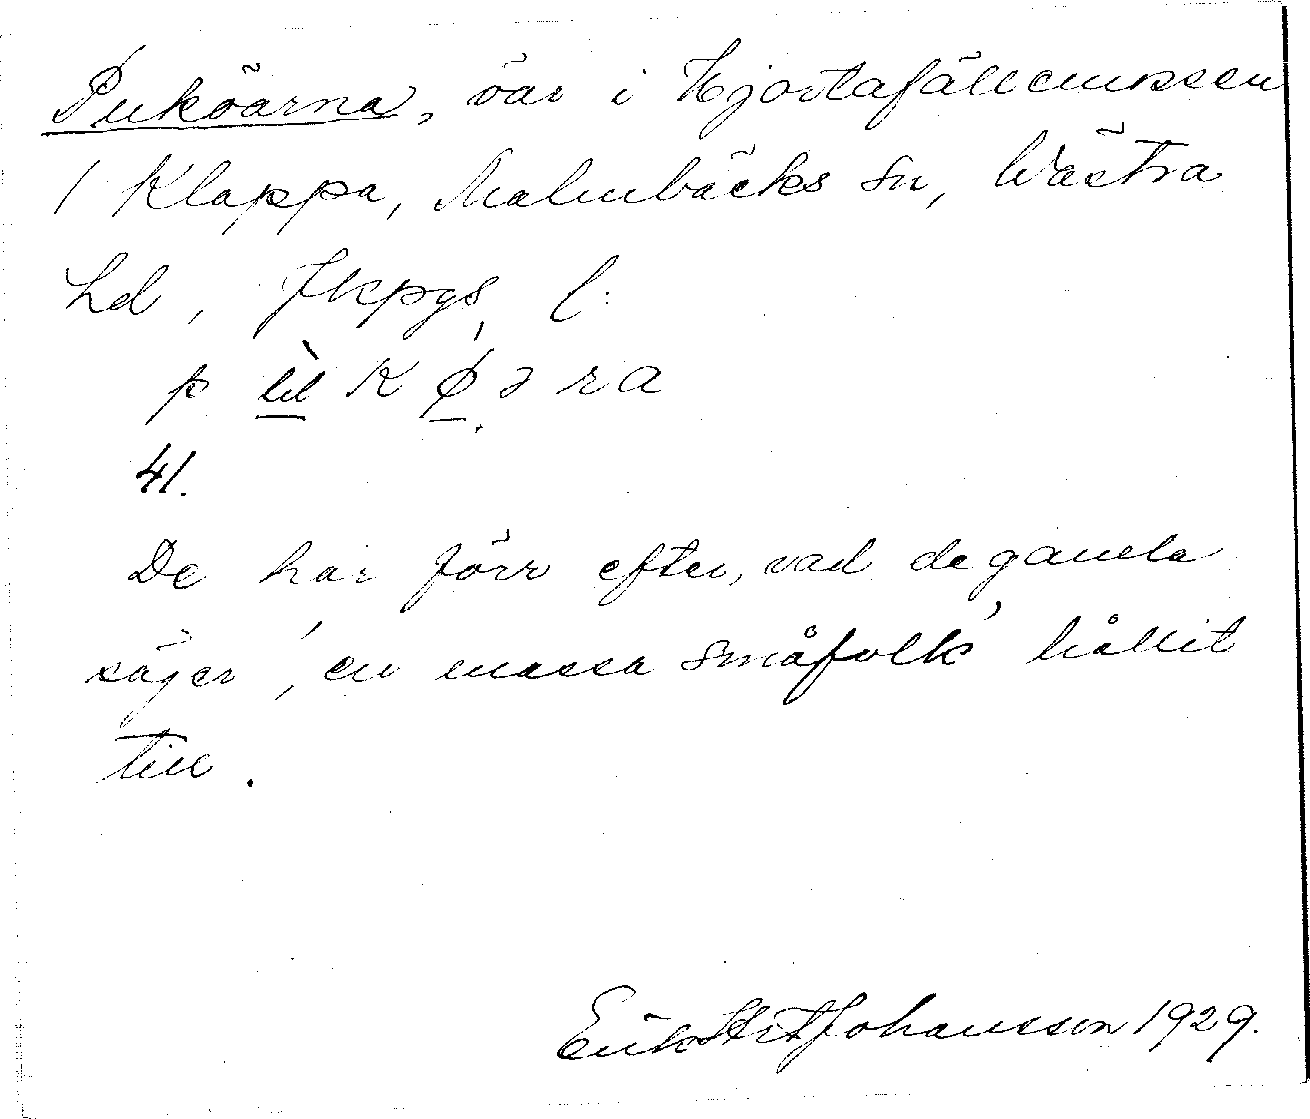 Puköarna, öar i Hjortafällemossen
/ Klappa, Malmbäcks sn, Västra
hd, Jkpgs l:
41.
De har förr efter, vad de gamla
säger, en massa småfolk hållit
till.
Erik Johansson 1929.